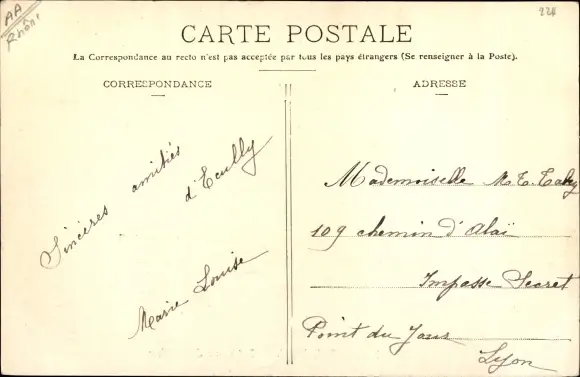 AA
Rhône
224
CARTE POSTALE
La Correspondance au recto n'est pas acceptée par tous les pays étrangers (Se renseigner à la Poste).
CORRESPONDANCE
ADRESSE
Sincères amitiés
d'Ecully
Marie Louise
Mademoiselle M. T.
109 chemin d'Alaï
Impasse Secret
Point du Jour
Lyon